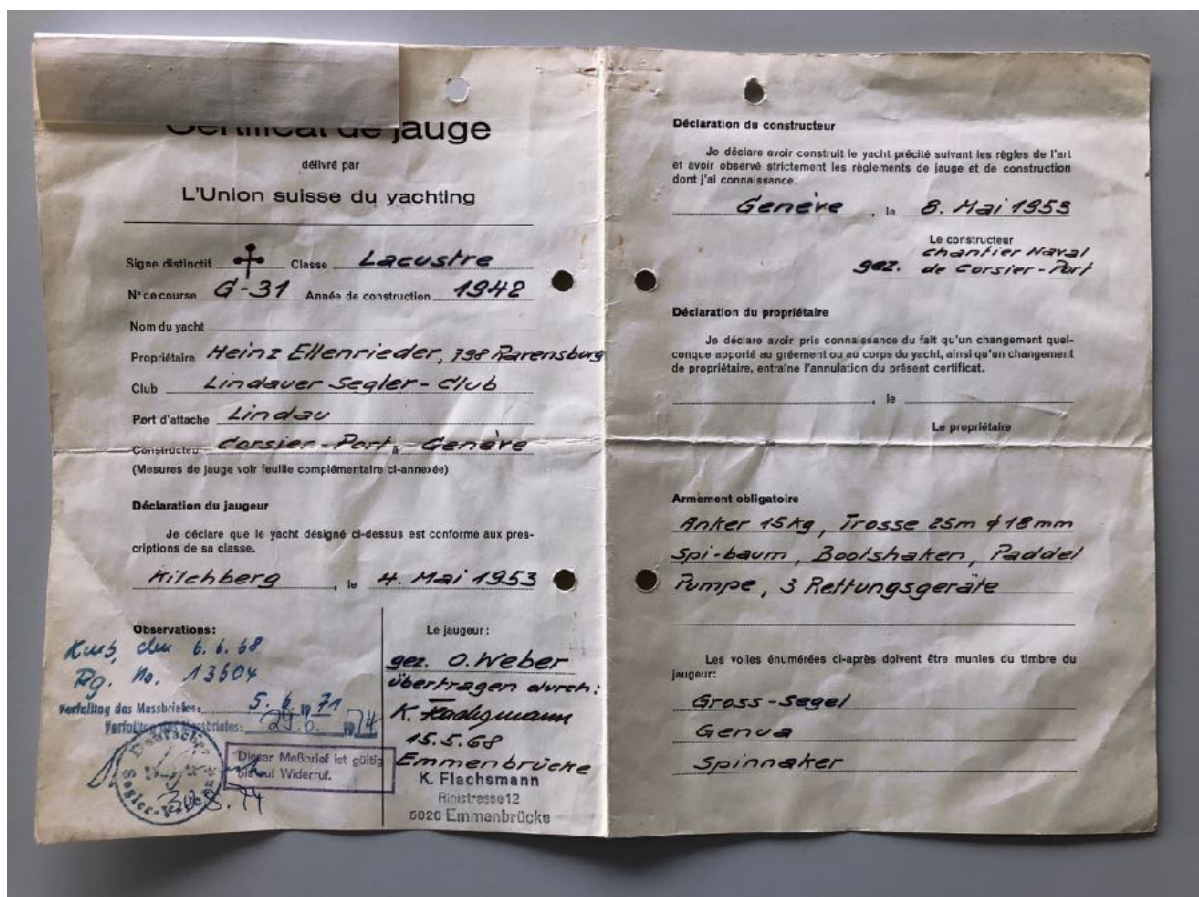 Certificat de jauge
délivré par
L'Union suisse du yachting
Signe distinctif Classe Lacustre
N° de course G-31 Année de construction 1942
Nom du yacht
Propriétaire Heinz Ellenrieder, 798 Ravensburg
Club Lindauer Segler-Club
Port d'attache Lindau
Constructeur Corsier-Port à Genève
(Mesures de jauge voir feuille complémentaire ci-annexée)
Déclaration du jaugeur
Je déclare que le yacht désigné ci-dessus est conforme aux pres-
criptions de sa classe.
Kilchberg, le 4. Mai 1953
Observations:
den 6.6.68
Rg. No. 13604
Verfalltag des Messbriefes: 5.6.1971
Verfalltag des Messbriefes: 29.6.1974
Deutscher
Segler-
Dieser Meßbrief ist gültig
bis auf Widerruf.
Le jaugeur:
gez. O. Weber
übertragen durch:
K. Flachsmann
15.5.68
Emmenbrücke
K. Flachsmann
6020 Emmenbrücke
Déclaration du constructeur
Je déclare avoir construit le yacht précité suivant les règles de l'art
et avoir observé strictement les règlements de jauge et de construction
dont j'ai connaissance.
Genève, le 8. Mai 1953
Le constructeur
Chantier Naval
gez. de Corsier-Port
Déclaration du propriétaire
Je déclare avoir pris connaissance du fait qu'un changement quel-
conque apporté au gréement ou au corps du yacht, ainsi qu'un changement
de propriétaire, entraîne l'annulation du présent certificat.
, le
Le propriétaire
Armement obligatoire
Anker 15kg, Trosse 25m ϕ 18mm
Spi-baum, Bootshaken, Paddel
Pumpe, 3 Rettungsgeräte
Les voiles énumérées ci-après doivent être munies du timbre du
jaugeur:
Gross-Segel
Genua
Spinnaker